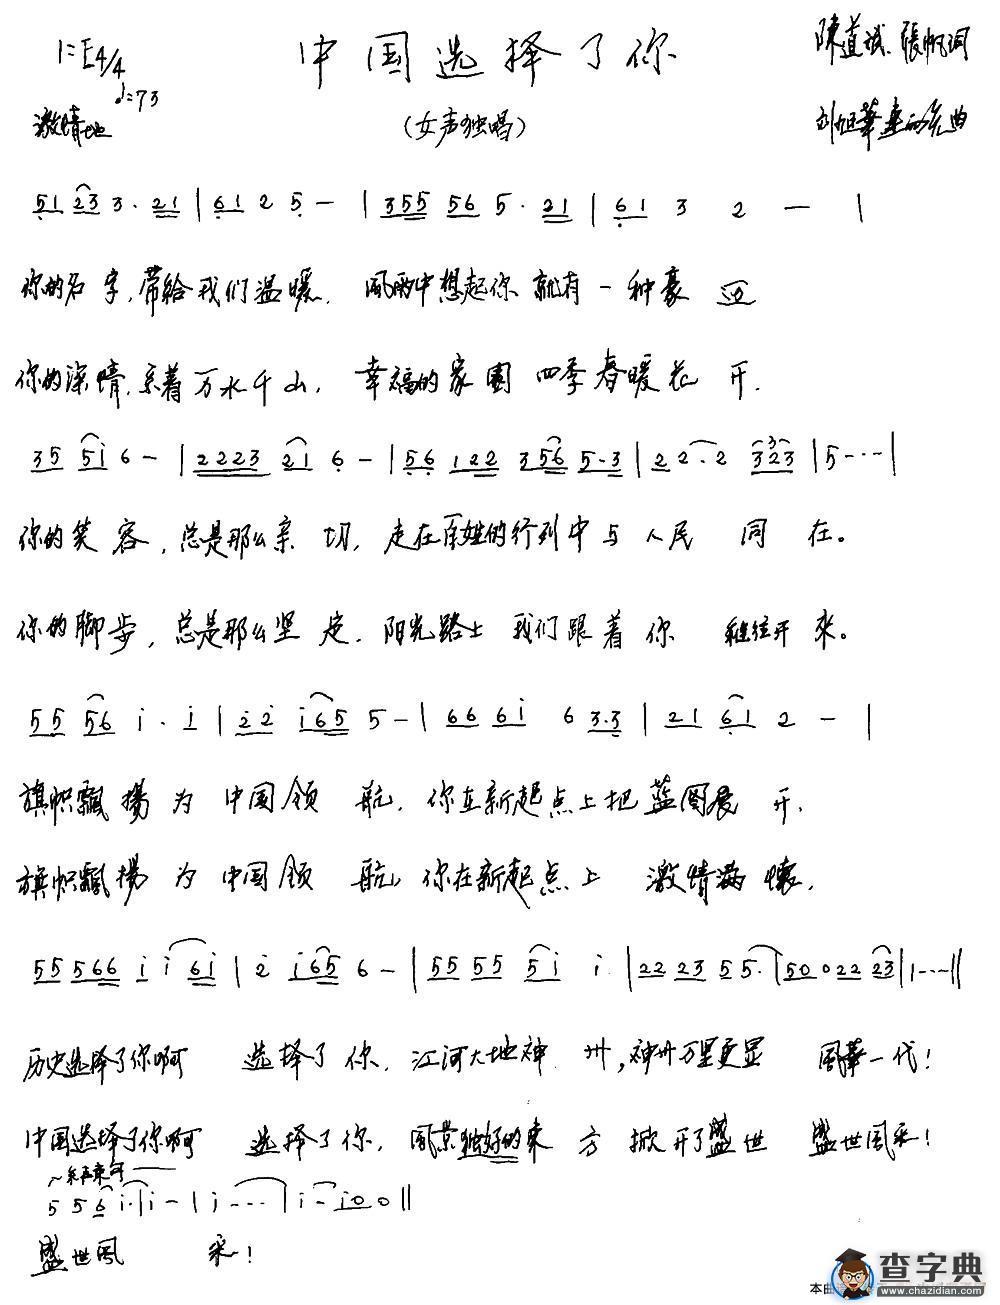 1=E4/4
中国选择了你
陳道斌、張帆词
♩=73
激情地
(女声独唱)
曲
51 23 3· 21 | 61 2 5 — | 355 56 5· 21 | 61 3 2 — |
你的名字,带给我们温暖. 風雨中想起你就有一种豪迈
你的深情,系着万水千山, 幸福的家園四季春暖花开.
35 51 6 — | 2223 21 6 — | 56 122 356 5·3 | 2 2·2 323 | 5··· |
你的笑容,总是那么亲切,走在百姓的行列中与人民同在。
你的脚步,总是那么坚定,阳光路上我们跟着你继往开來。
55 56 i · i | 22 i65 5 — | 66 6i 6 3·3 | 21 61 2 — |
旗帜飄揚为中国领航,你在新起点上把蓝图展开,
旗帜飄揚为中国领航,你在新起点上激情满懷,
55 566 i i 6i | 2 i65 6 — | 55 55 5i i· | 22 23 5 5· | 50 022 23 | 1--- ||
历史选择了你啊 选择了你,江河大地神州,神州万里更显風華一代!
中国选择了你啊 选择了你,風景独好的东方掀开了盛世 盛世風采!
结束句
5 5 6 i· | i — | i --- | i — i00 ||
盛世風采!
本曲
查字典
www.chazidian.com